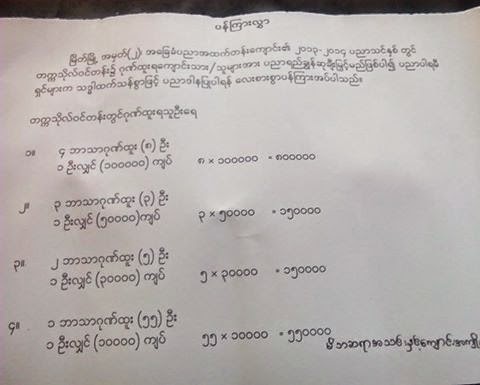 ပန်ကြားလွှာ
မြိတ်မြို့ အမှတ်(၂) အခြေခံပညာအထက်တန်းကျောင်း၏ ၂၀၁၃-၂၀၁၄ ပညာသင်နှစ် တွင်
တက္ကသိုလ်ဝင်တန်း၌ ဂုဏ်ထူးရကျောင်းသား/သူများအား ပညာရည်ချွန်ဆုချီးမြှင့်မည်ဖြစ်ပါ၍ ပညာပါရမီ
ရှင်များက သဒ္ဓါထက်သန်စွာဖြင့် ပညာဒါနပြုပါရန် လေးစားစွာပန်ကြားအပ်ပါသည်။
တက္ကသိုလ်ဝင်တန်းတွင်ဂုဏ်ထူးရသူဦးရေ
၁။ ၄ ဘာသာဂုဏ်ထူး (၈) ဦး
၁ ဦးလျှင် (၁၀၀၀၀၀) ကျပ် ၈ × ၁၀၀၀၀၀ = ၈၀၀၀၀၀
၂။ ၃ ဘာသာဂုဏ်ထူး (၃) ဦး
၁ ဦးလျှင် (၅၀၀၀၀)ကျပ် ၃ × ၅၀၀၀၀ = ၁၅၀၀၀၀
၃။ ၂ ဘာသာဂုဏ်ထူး (၅) ဦး
၁ ဦးလျှင် (၃၀၀၀၀) ကျပ် ၅ × ၃၀၀၀၀ = ၁၅၀၀၀၀
၄။ ၁ ဘာသာဂုဏ်ထူး (၅၅) ဦး
၁ ဦးလျှင် (၁၀၀၀၀) ကျပ် ၅၅ × ၁၀၀၀၀ = ၅၅၀၀၀၀